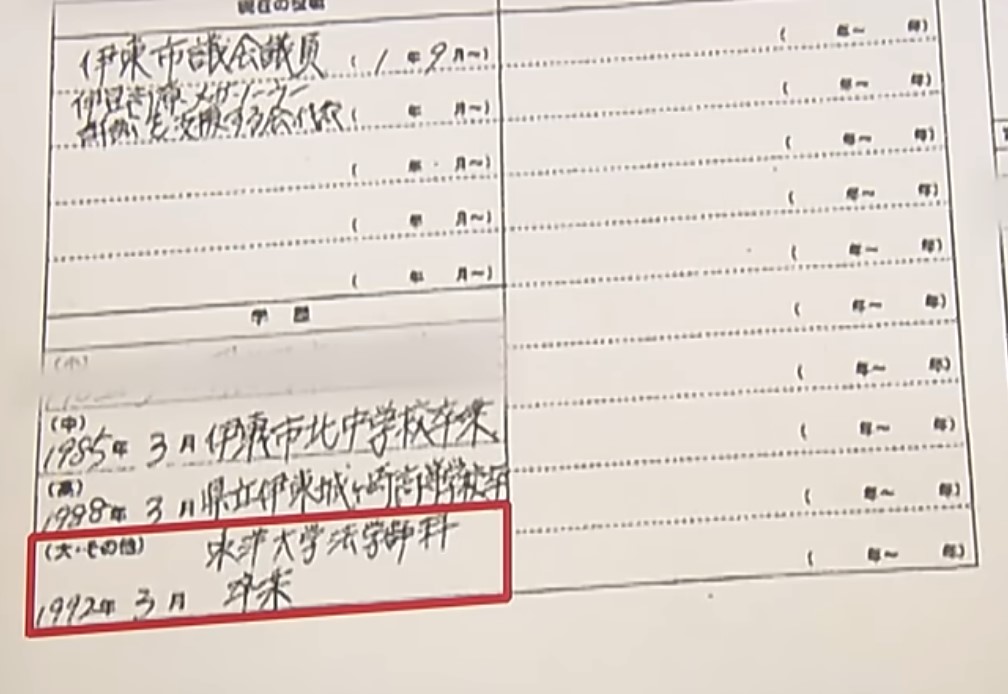 現在の役職
伊東市議会議員 ( 1 年 9 月～)
伊豆高原メガソーラー
訴訟を支援する会代表 ( 年 月～)
( 年 月～)
( 年 月～)
( 年 月～)
学 歴
(小)
(中)
1985年 3 月 伊東市北中学校卒業
(高)
1988年 3 月 県立伊東城ヶ崎高等学校卒
(大・その他) 東洋大学法学部科
1992年 3 月 卒業
( 年～ 年)
( 年～ 年)
( 年～ 年)
( 年～ 年)
( 年～ 年)
( 年～ 年)
( 年～ 年)
( 年～ 年)
( 年～ 年)
( 年～ 年)